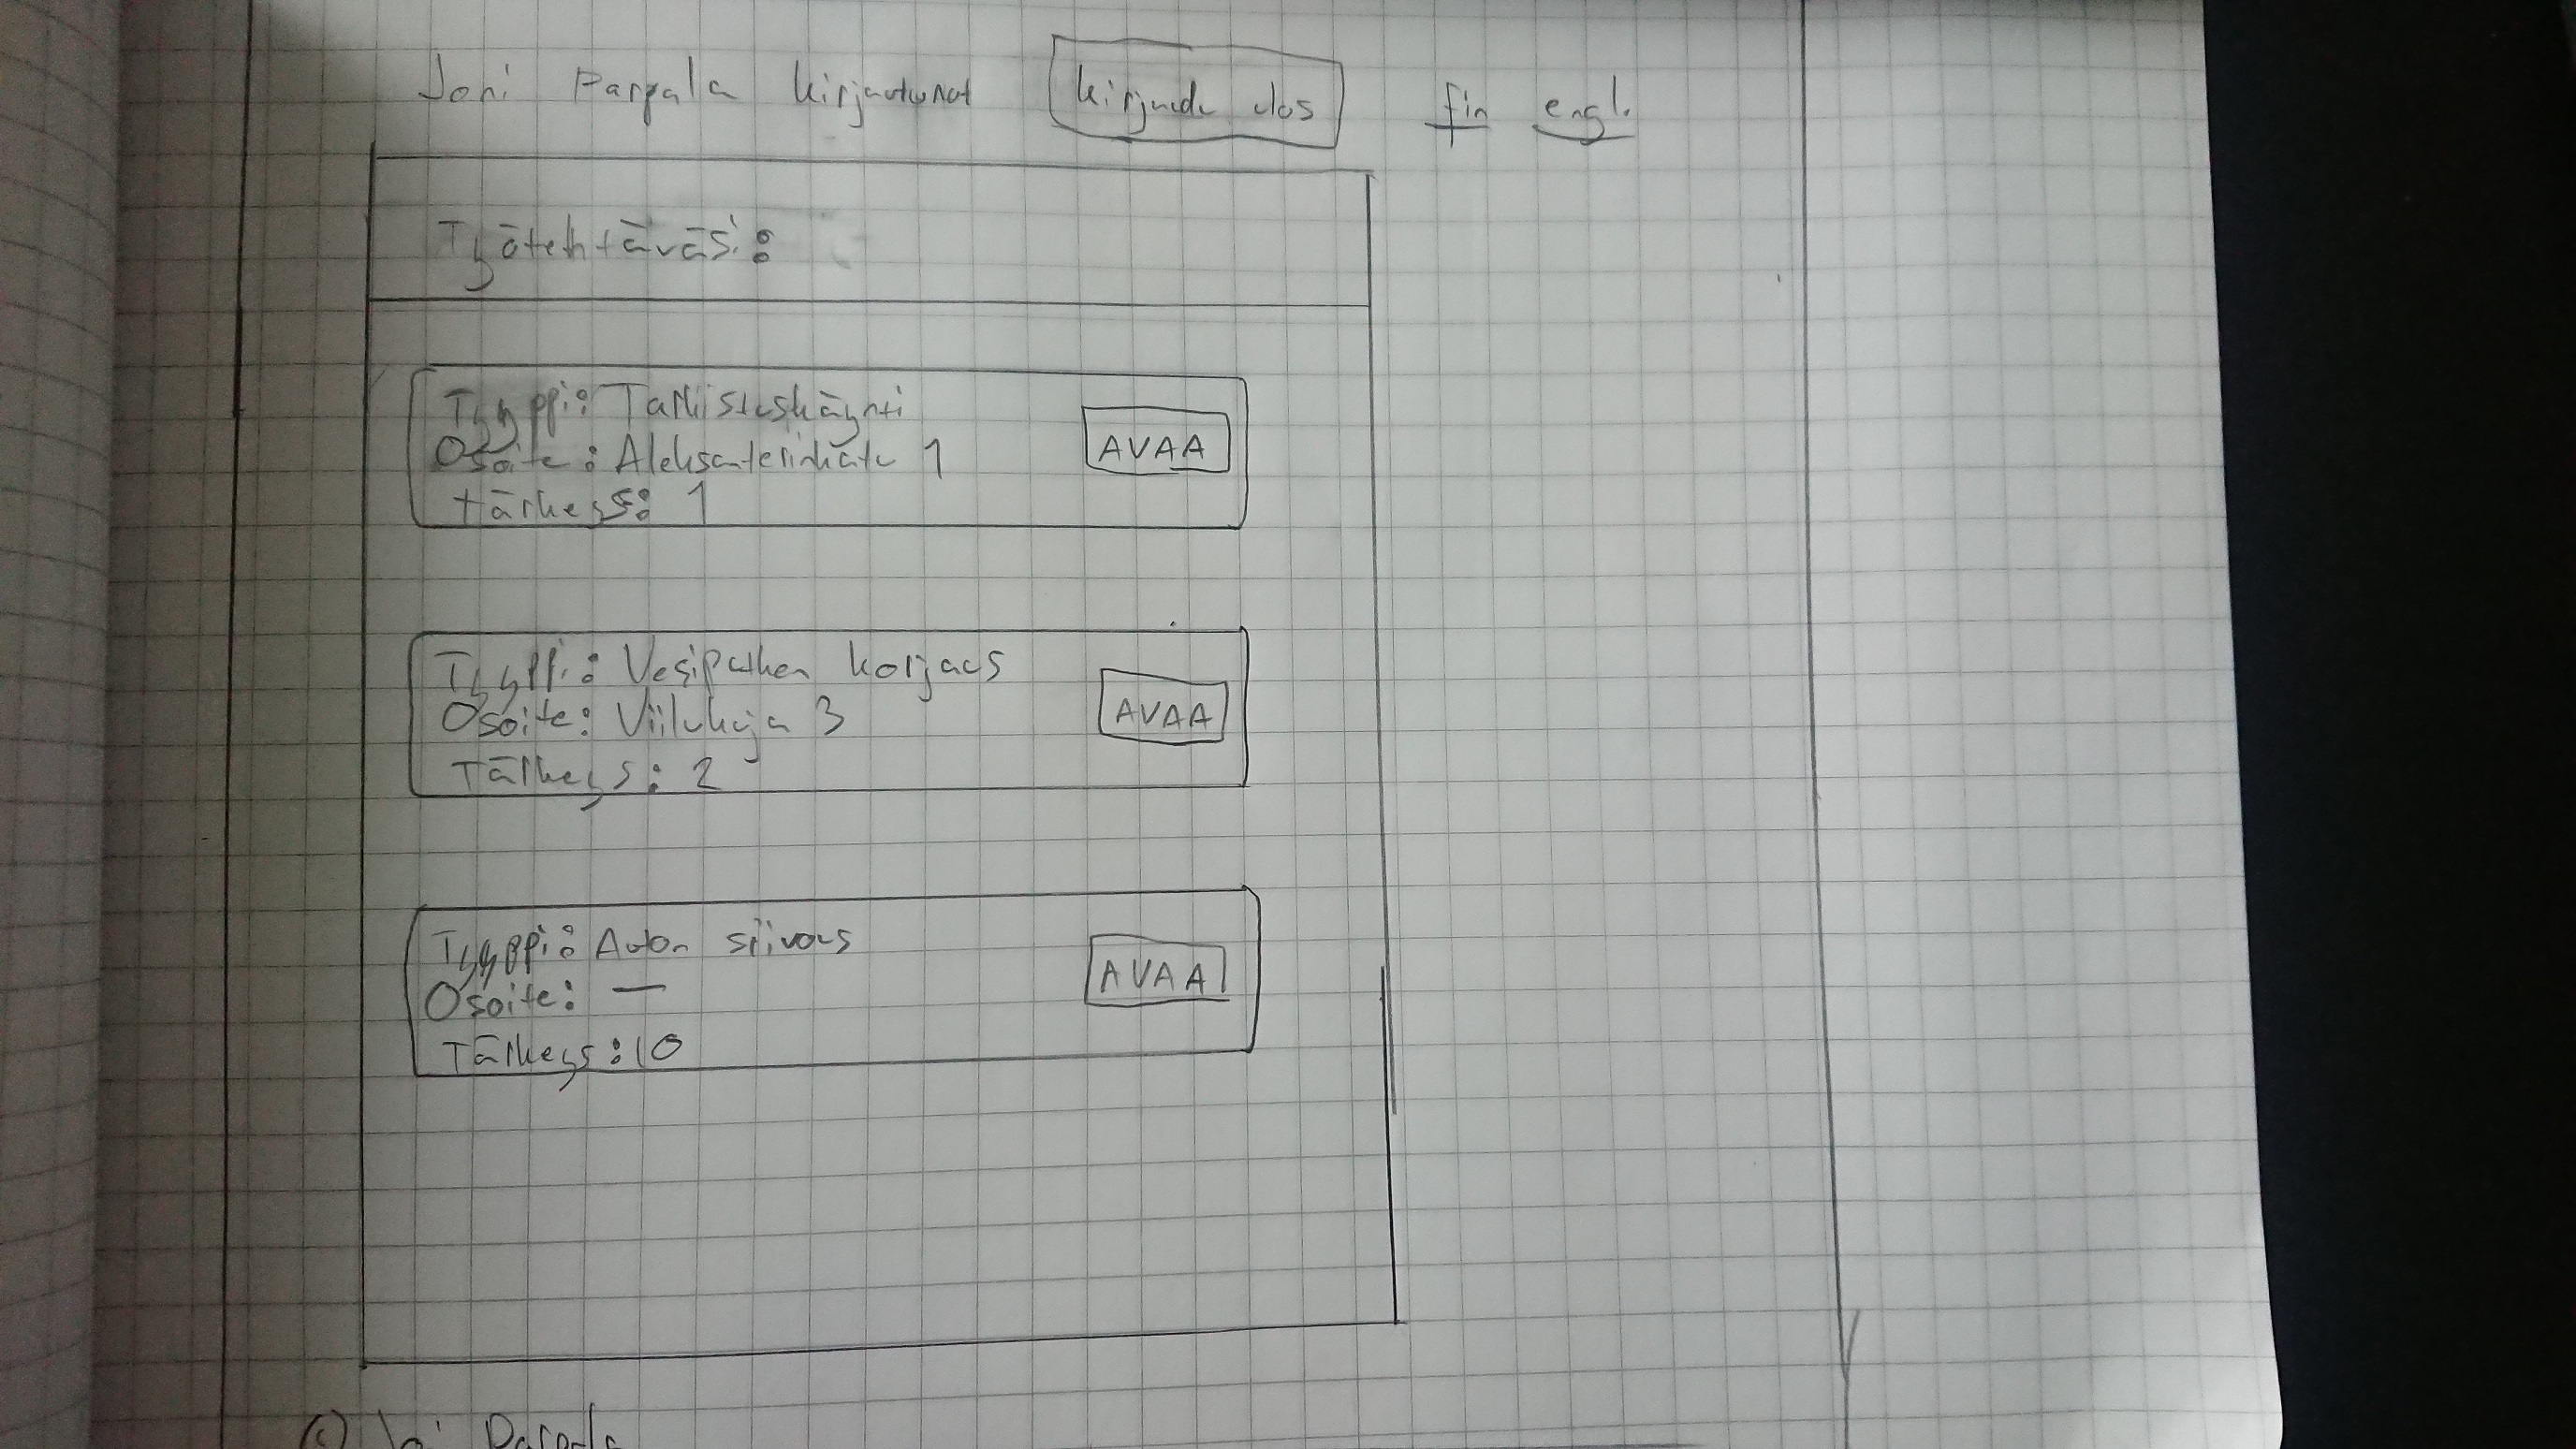 Joni Parpala kirjautunut kirjaudu ulos fin engl.
Työtehtäväsi:
Tyyppi: Tarkistuskäynti
Osoite: Aleksanterinkatu 1
tärkeys: 1
AVAA
Tyyppi: Vesiputken korjaus
Osoite: Viilukuja 3
Tärkeys: 2
AVAA
Tyyppi: Auton siivous
Osoite: —
Tärkeys: 10
AVAA
© Joni Parpala